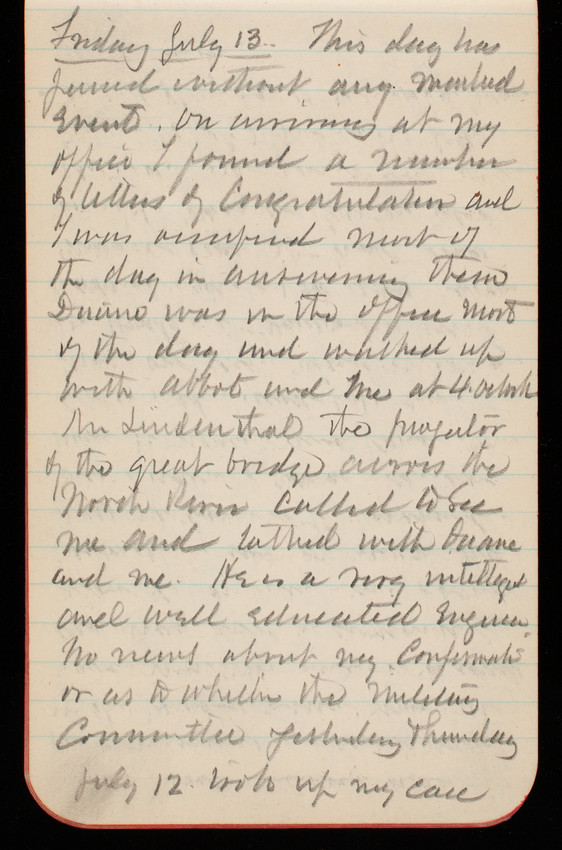 Friday July 13. This day has
passed without any marked
Event. On arriving at my
office I found a number
of letters of Congratulation and
I was occupied most of
the day in answering them
Duane was in the office most
of the day and walked up
with Abbot and me at 4 oclock
Mr Lindenthal the projector
of the great bridge across the
North River called to See
me and talked with Duane
and me. He is a very intelligent
and well educated Engineer.
No news about my Confirmation
or as to whether the Military
Committee yesterday Thursday
July 12 took up my case